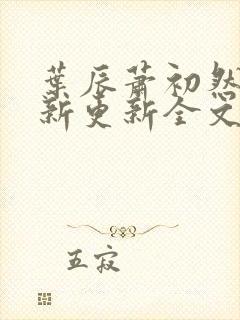 葉辰蕭初然
新更新全文
五寂